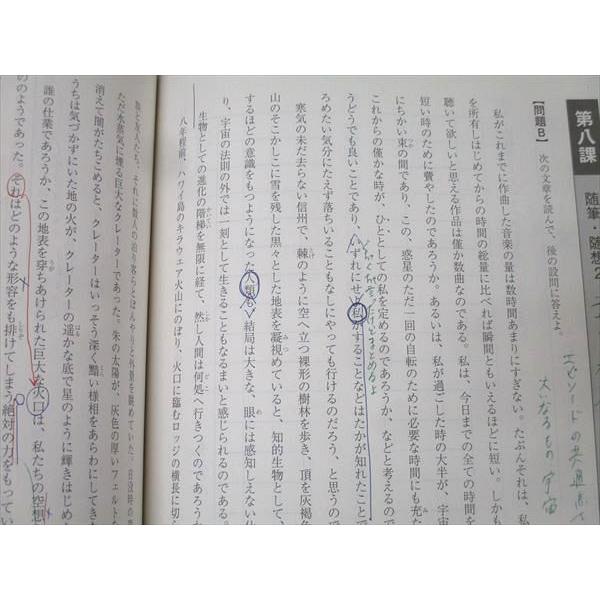 第八課
随筆・随想2
【問題B】 次の文章を読んで、後の設問に答えよ。
エピソードの共通点
大いなるもの 宇宙
私がこれまでに作曲した音楽の量は数時間あまりにすぎない。たぶんそれは、私
を所有しはじめてからの時間の総量に比べれば瞬間ともいえるほどに短い。しかも
聴いて欲しいと思える作品は僅か数曲なのである。私は、今日までの全ての時間を
短い時のために費やしたのであろうか。あるいは、私が過ごした時の大半が、宇宙
にちかい束の間であり、この、惑星のただ一回の自転のために必要な時間にも充た
これからの僅かな時が、ひとりとしての私を定めるのであろうか、などと考えるので
うどうでも良いことであり、いずれにせよ私がすることなどはたかが知れたことで
ろめたい気分にたえず落ちいることもなしにやっても行けるのだろう、と思うので
寒気の未だ去らない信州で、棘のように空へ立つ裸形の樹林を歩き、頂を灰褐色
山のそこかしこに雪を残した黒々とした地表を凝視めていると、知的生物として、
するほどの意識をもつようになった人類も、結局は大きな、眼には感知しえない仕
り、宇宙の法則の外では一刻として生きることもなるまいと感じられるのである。
生物としての進化の階梯を無限に経て、然し人間は何処へ行きつくのであろうか
八年程前、ハワイ島のキラウェア火山にのぼり、火口に臨むロッジの横長に切ら
娘と友人たち、それに数人の泊り客らとぼんやりと外景を眺めていた。日没時の
ただ水蒸気に煙る巨大なクレーターであった。朱の太陽が、灰色の厚いフェルト
消えて闇がたちこめると、クレーターはいっそう深く黝い様相をあらわにしてき
うちは気づかずにいた地の火が、クレーターの遥かな底で星のように輝きはじめ
誰の仕業であろうか、この地表を穿ちあけられた巨大な火口は、私たちの空想
のようであった。それはどのような形容をも排けてしまう絶対の力をもってい